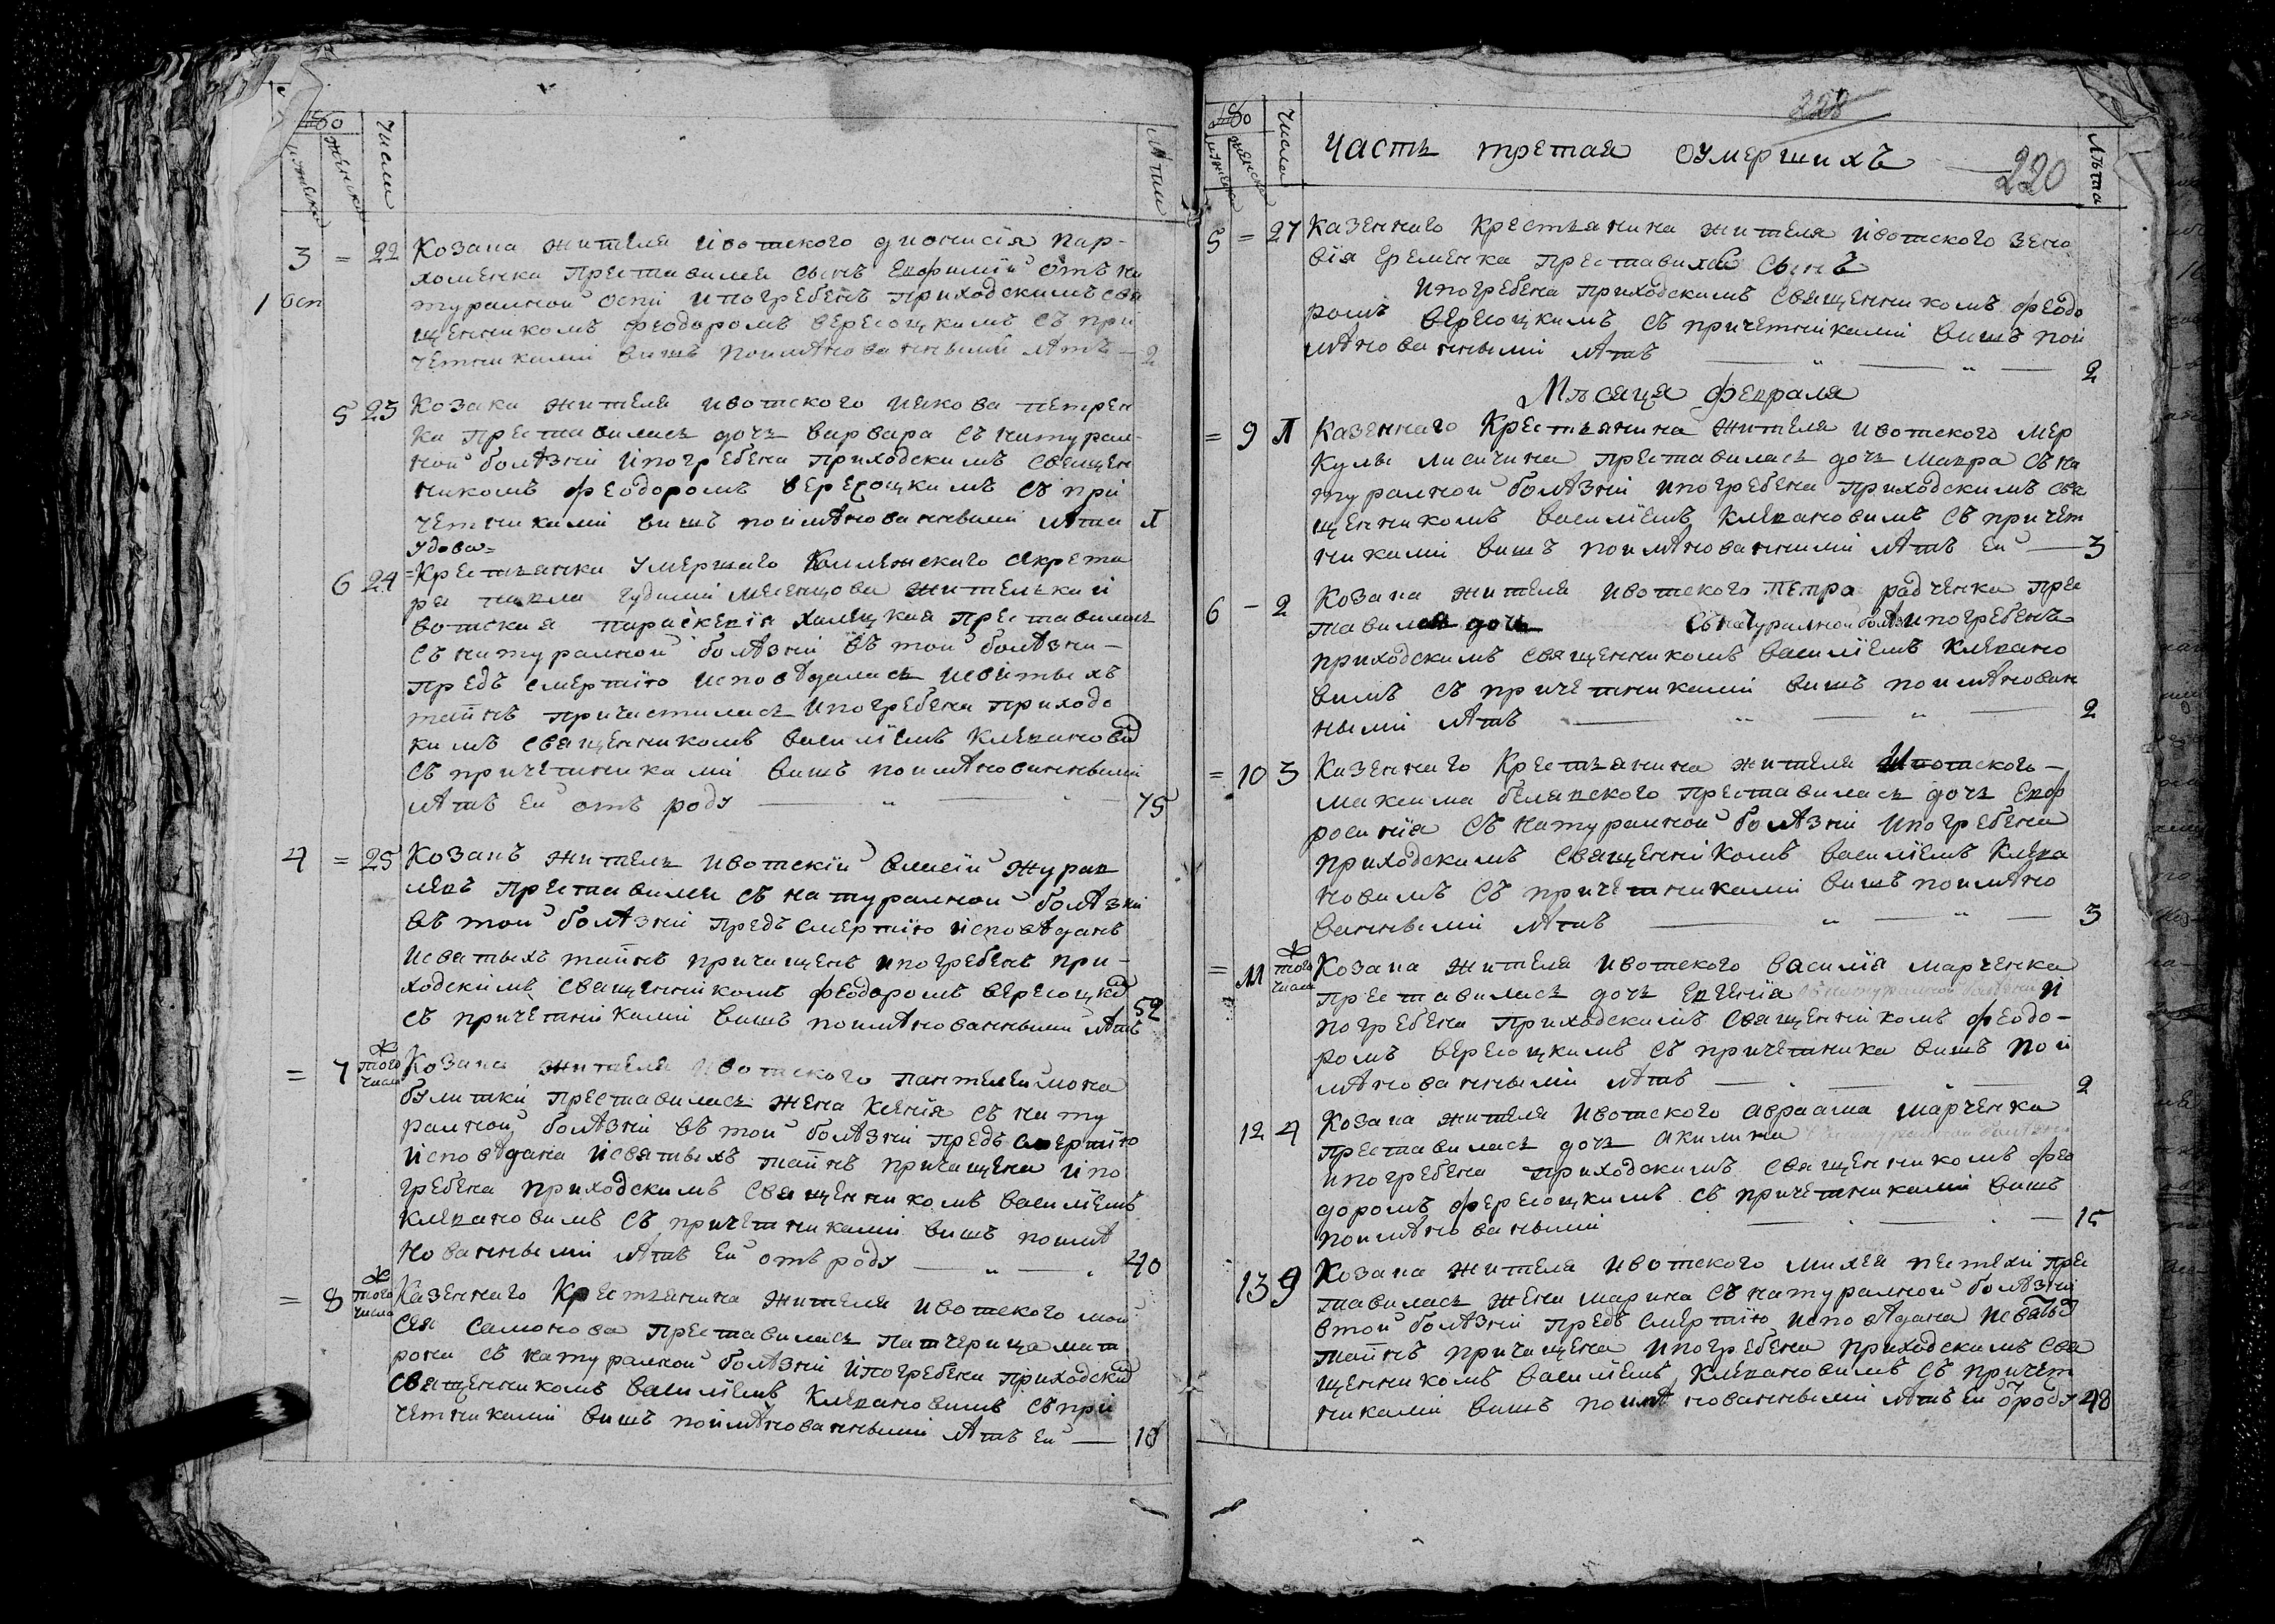 Число
мужеска
женска
Лѣта
3 = 22 Козака жителя ивотского дионисія пар-
хоменка преставился сынъ евфимій отъ на
1 осп туралной оспи ипогребенъ приходскимъ свя
щенникомъ феодоромъ верегоцкимъ съ при
четниками вишъ поимѣнованными лѣтъ — 2
5 23 Козака жителя ивотского иякова петрен
ка преставилась дочь варвара съ натурал-
ной болѣзни ипогребена приходскимъ священ
никомъ феодоромъ верегоцкимъ съ при
четниками вишъ поимѣнованными лѣта 1
удова=
6 24 =Крестьянка умершаго Коллежского секрета
ря жителькаи
вотская параскевія преставилась
съ натуралной болѣзни въ той болѣзни-
предъ смертію исповѣдалась исвятыхъ
тайнъ причастилась ипогребена приходс
кимъ священникомъ василіемъ клевановим
съ причетниками вишъ поимѣнованными
лѣтъ ей отъ роду — 75
4 = 25 Козакъ житель ивотскій журав
левъ преставился съ натуралной болѣзни
въ той болѣзни предъ смертію исповѣданъ
исвятыхъ тайнъ причащенъ ипогребенъ при-
ходскимъ священникомъ феодоромъ верегоцким
съ причетниками вишъ поимѣнованными лѣтъ 52
= 7 того числа Козака жителя ивотского пантелеимона
булитки преставилась жена ксенія съ нату
ралной болѣзни въ той болѣзни предъ смертію
исповѣдана исвятыхъ тайнъ причащена ипо
гребена приходскимъ священникомъ василіемъ
клевановимъ съ причетниками вишъ поимѣ
нованными лѣтъ ей отъ роду — 40
= 8 того числа Казеннаго Крестьянина жителя ивотского мои
сея самонова преставилась патчерица мат
рона съ натуралной болѣзни ипогребена приходским
священникомъ василіемъ клевановимъ съ при
четниками вишъ поимѣнованными лѣтъ ей — 10
228
Число
мужеска
женска
Часть третая оумершихъ
220
Лѣта
5 = 27 Казеннаго Крестьянина жителя ивотского зено
вія еременка преставился сынъ
ипогребена приходскимъ священникомъ феодо
ромъ верегоцкимъ съ причетниками вишъ пои
мѣнованными лѣтъ — 2
Мѣсяца февраля
= 9 1 Казеннаго Крестьянина жителя ивотского мер
кулы лисичина преставилась дочь мавра съ на
туралной болѣзни ипогребена приходскимъ свя
щенникомъ василіемъ клевановимъ съ причет
никами вишъ поимѣнованними лѣтъ ей — 3
6 - 2 Козака жителя ивотского петра радченка прес
тавился дочь съ натуралной болѣз ипогребенъ
приходскимъ священникомъ василіемъ клевано
вимъ съ причетниками вишъ поимѣнован
ными лѣтъ — 2
= 10 3 Казеннаго Крестьянина жителя ивотского-
максима белявского преставилась дочь евф
росинія съ натуралной болѣзни ипогребена
приходскимъ священникомъ василіемъ клева
новимъ съ причетниками вишъ поимѣно
ванными лѣтъ — 3
= 11 того числа Козака жителя ивотского василія марченка
преставилась дочь евгенія съ натуралной болѣзни и
погребена приходскимъ священникомъ феодо-
ромъ верегоцкимъ съ причетника вишъ пои
мѣнованными лѣтъ — 2
12 4 Козака жителя ивотского авраама марченка
преставилась дочь акилина съ натуралной болѣзни
ипогребена приходскимъ священникомъ фео
доромъ ферегоцкимъ съ причетниками вишъ
поимѣнованными — 15
13 9 Козака жителя ивотского михея прес
тавилась жена марина съ натуралной болѣзни
втой болѣзни предъ смертію исповѣдана исвятых
тайнъ причащена ипогребена приходскимъ свя
щенникомъ василіемъ клевановимъ съ причет
никами вишъ поимѣнованными лѣтъ ей ѿроду 48